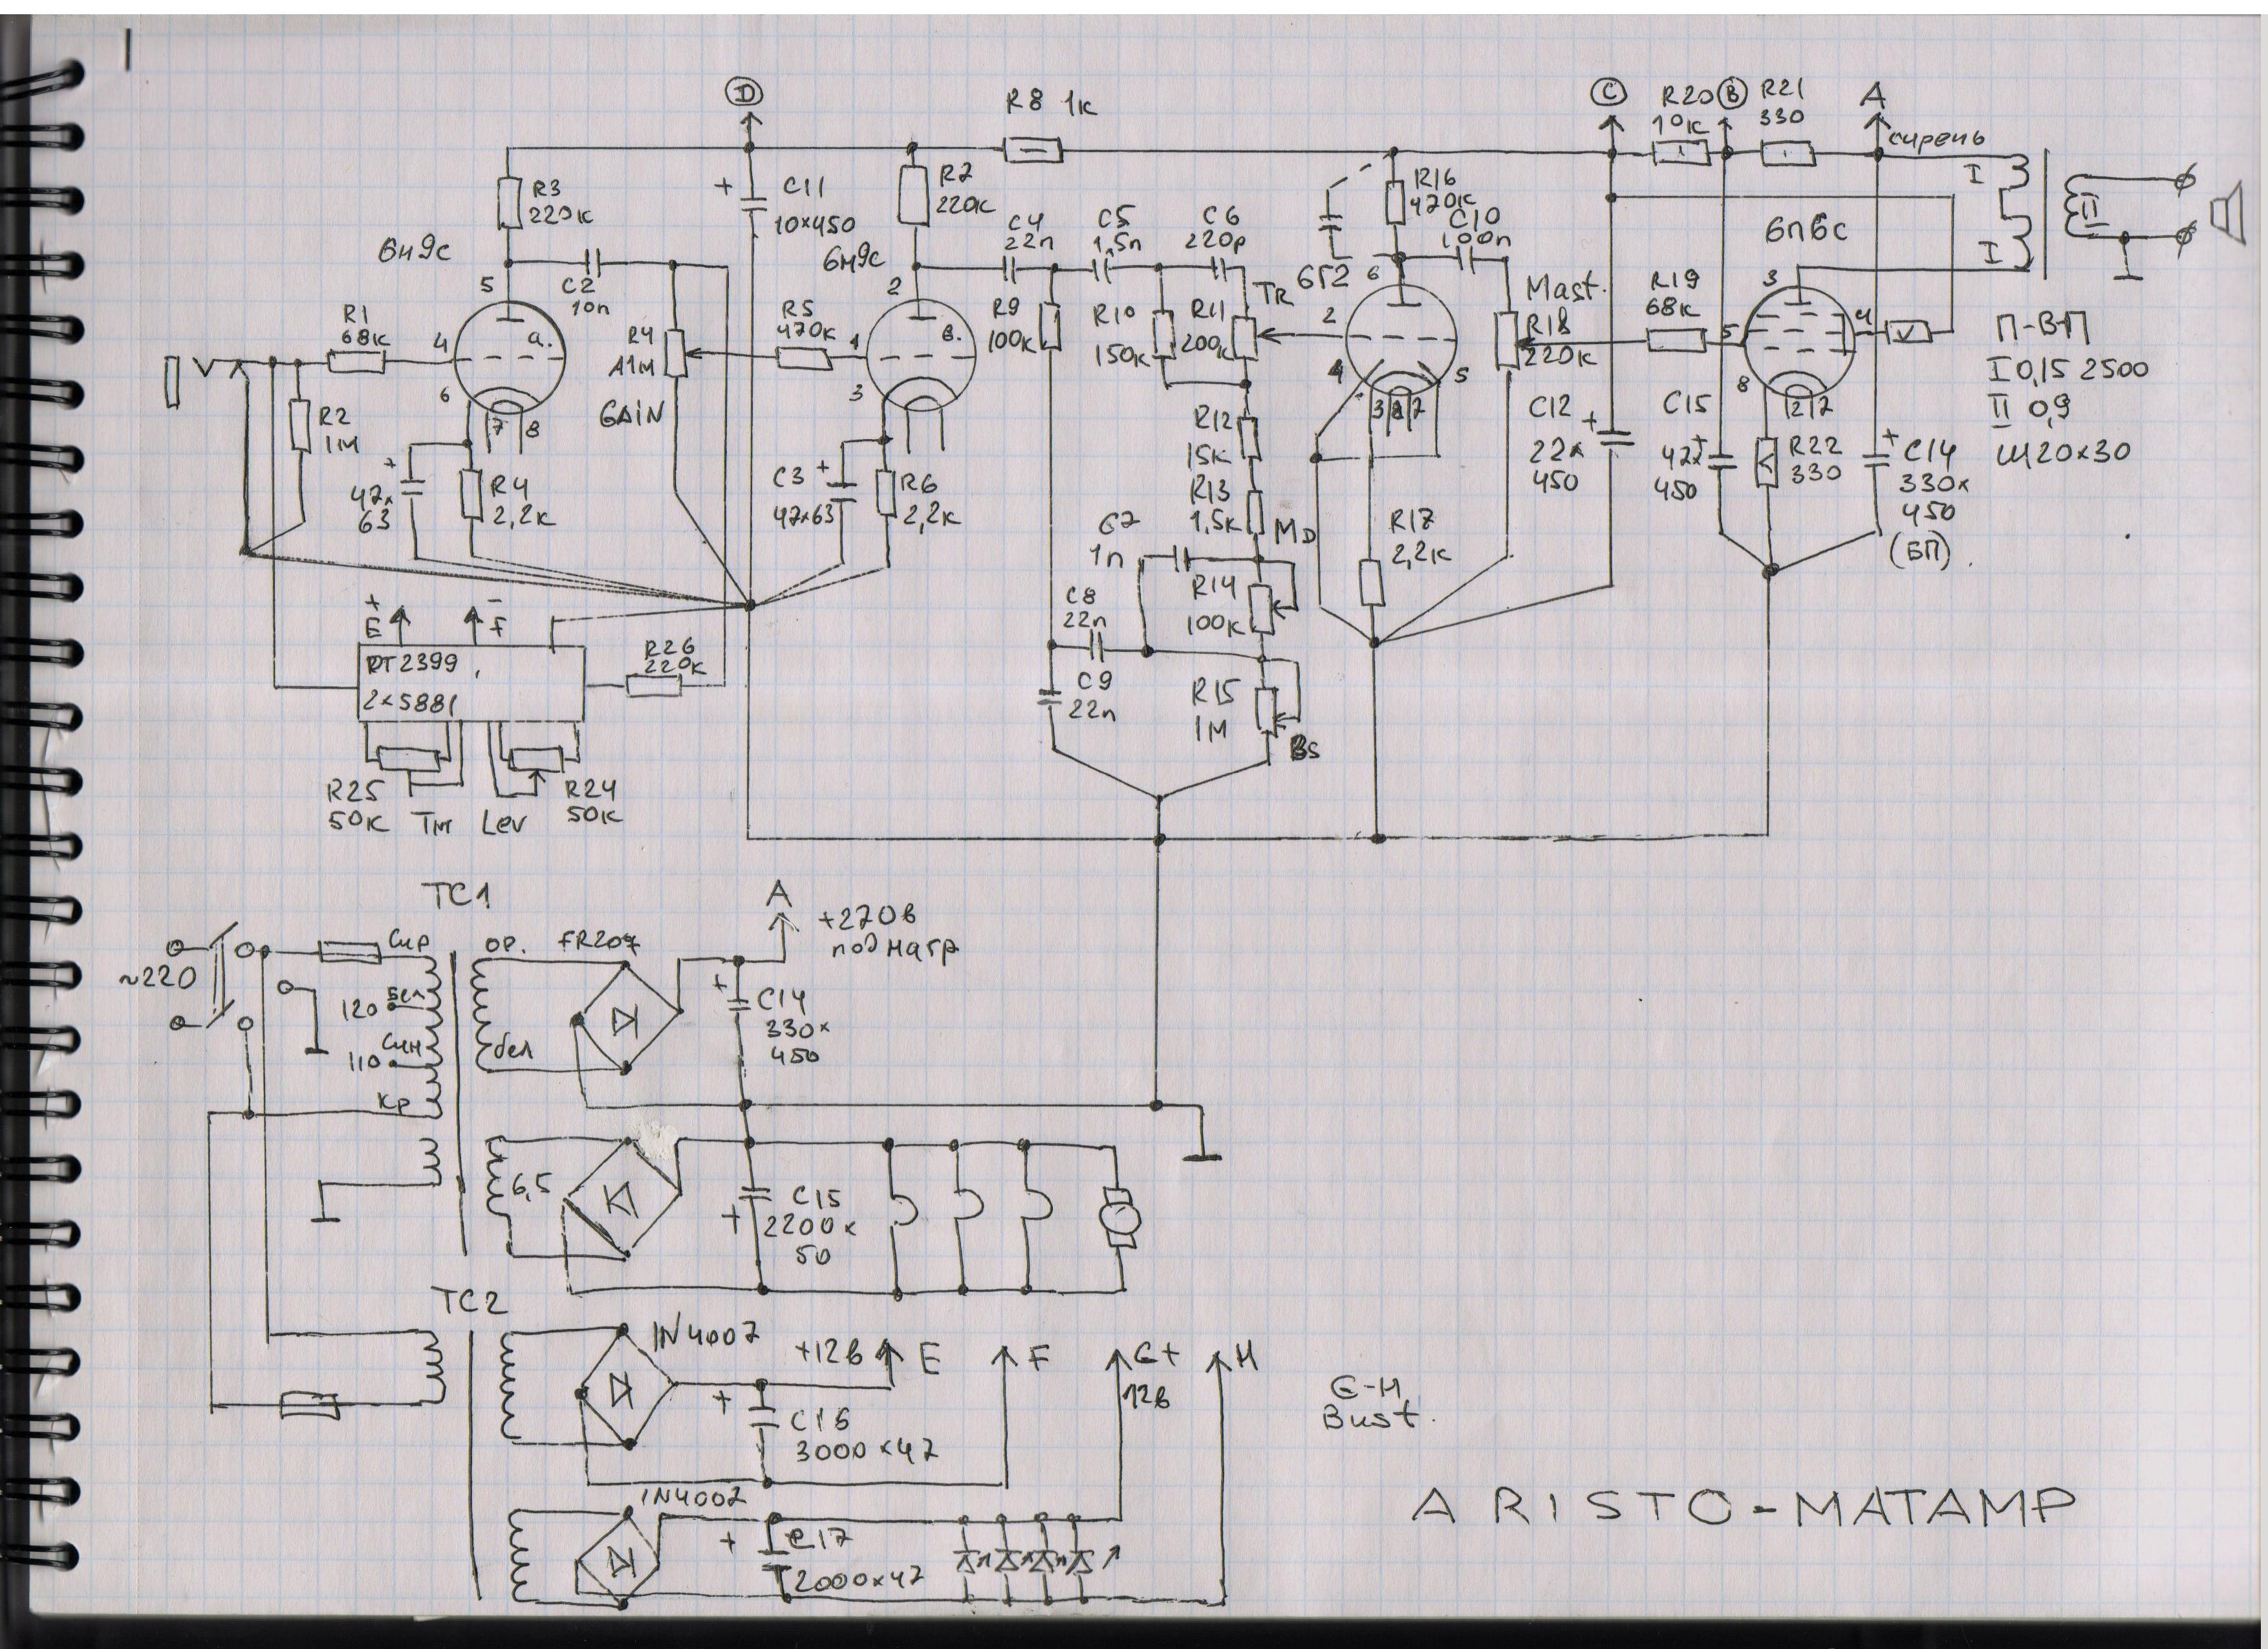 D
R8 1к
C
R20
10к
B
R21
330
A
сирень
R3
220к
+
C11
10×450
R2
220к
R16
470к
I
II
I
6н9с
6н9с
C4
22п
C5
1,5п
C6
220р
C10
100п
6п6с
5
C2
10п
2
6Г2
6
3
R1
68к
4
a.
R4
A1M
R5
470к
1
в.
R9
100к
R10
150к
R11
200к
TR
2
Mast.
R18
220к
R19
68к
5
4
П-В-П
I 0,15 2500
II 0,9
Ш20×30
6
GAIN
3
4
5
8
R2
1М
7 8
3 8 7
2 7
+
47×
63
R4
2,2к
C3
+
47×63
R6
2,2к
R12
15к
R13
1,5к
MD
R17
2,2к
C12
+
22×
450
C15
+
47×
450
R22
330
+
C14
330×
450
(БП).
C7
1п
R14
100к
+
E
-
F
C8
22п
PT2399
2×5881
R26
220к
C9
22п
R15
1М
BS
R25
50к
Тм
Lev
R24
50к
TC1
A
+270в
под нагр
~220
Сир
ор.
FR207
120
бел
110
Син
бел
Кр
+
C14
330×
450
6,5
+
C15
2200×
50
TC2
1N4007
+12в
E
F
G+
12в
H
+
C16
3000×47
G-H
Bust.
1N4007
+
C17
2000×47
ARISTO-MATAMP